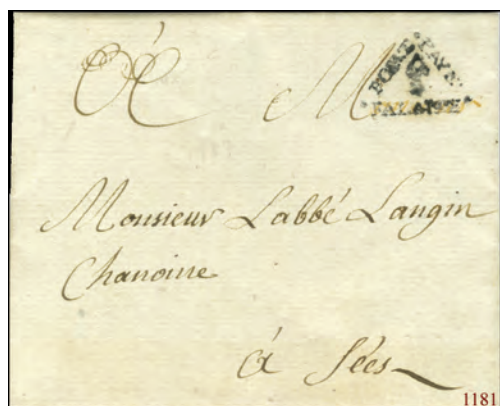 M
PORT PAYÉ
FALAISE
Monsieur Labbé Langin
Chanoine
à Sées
1181